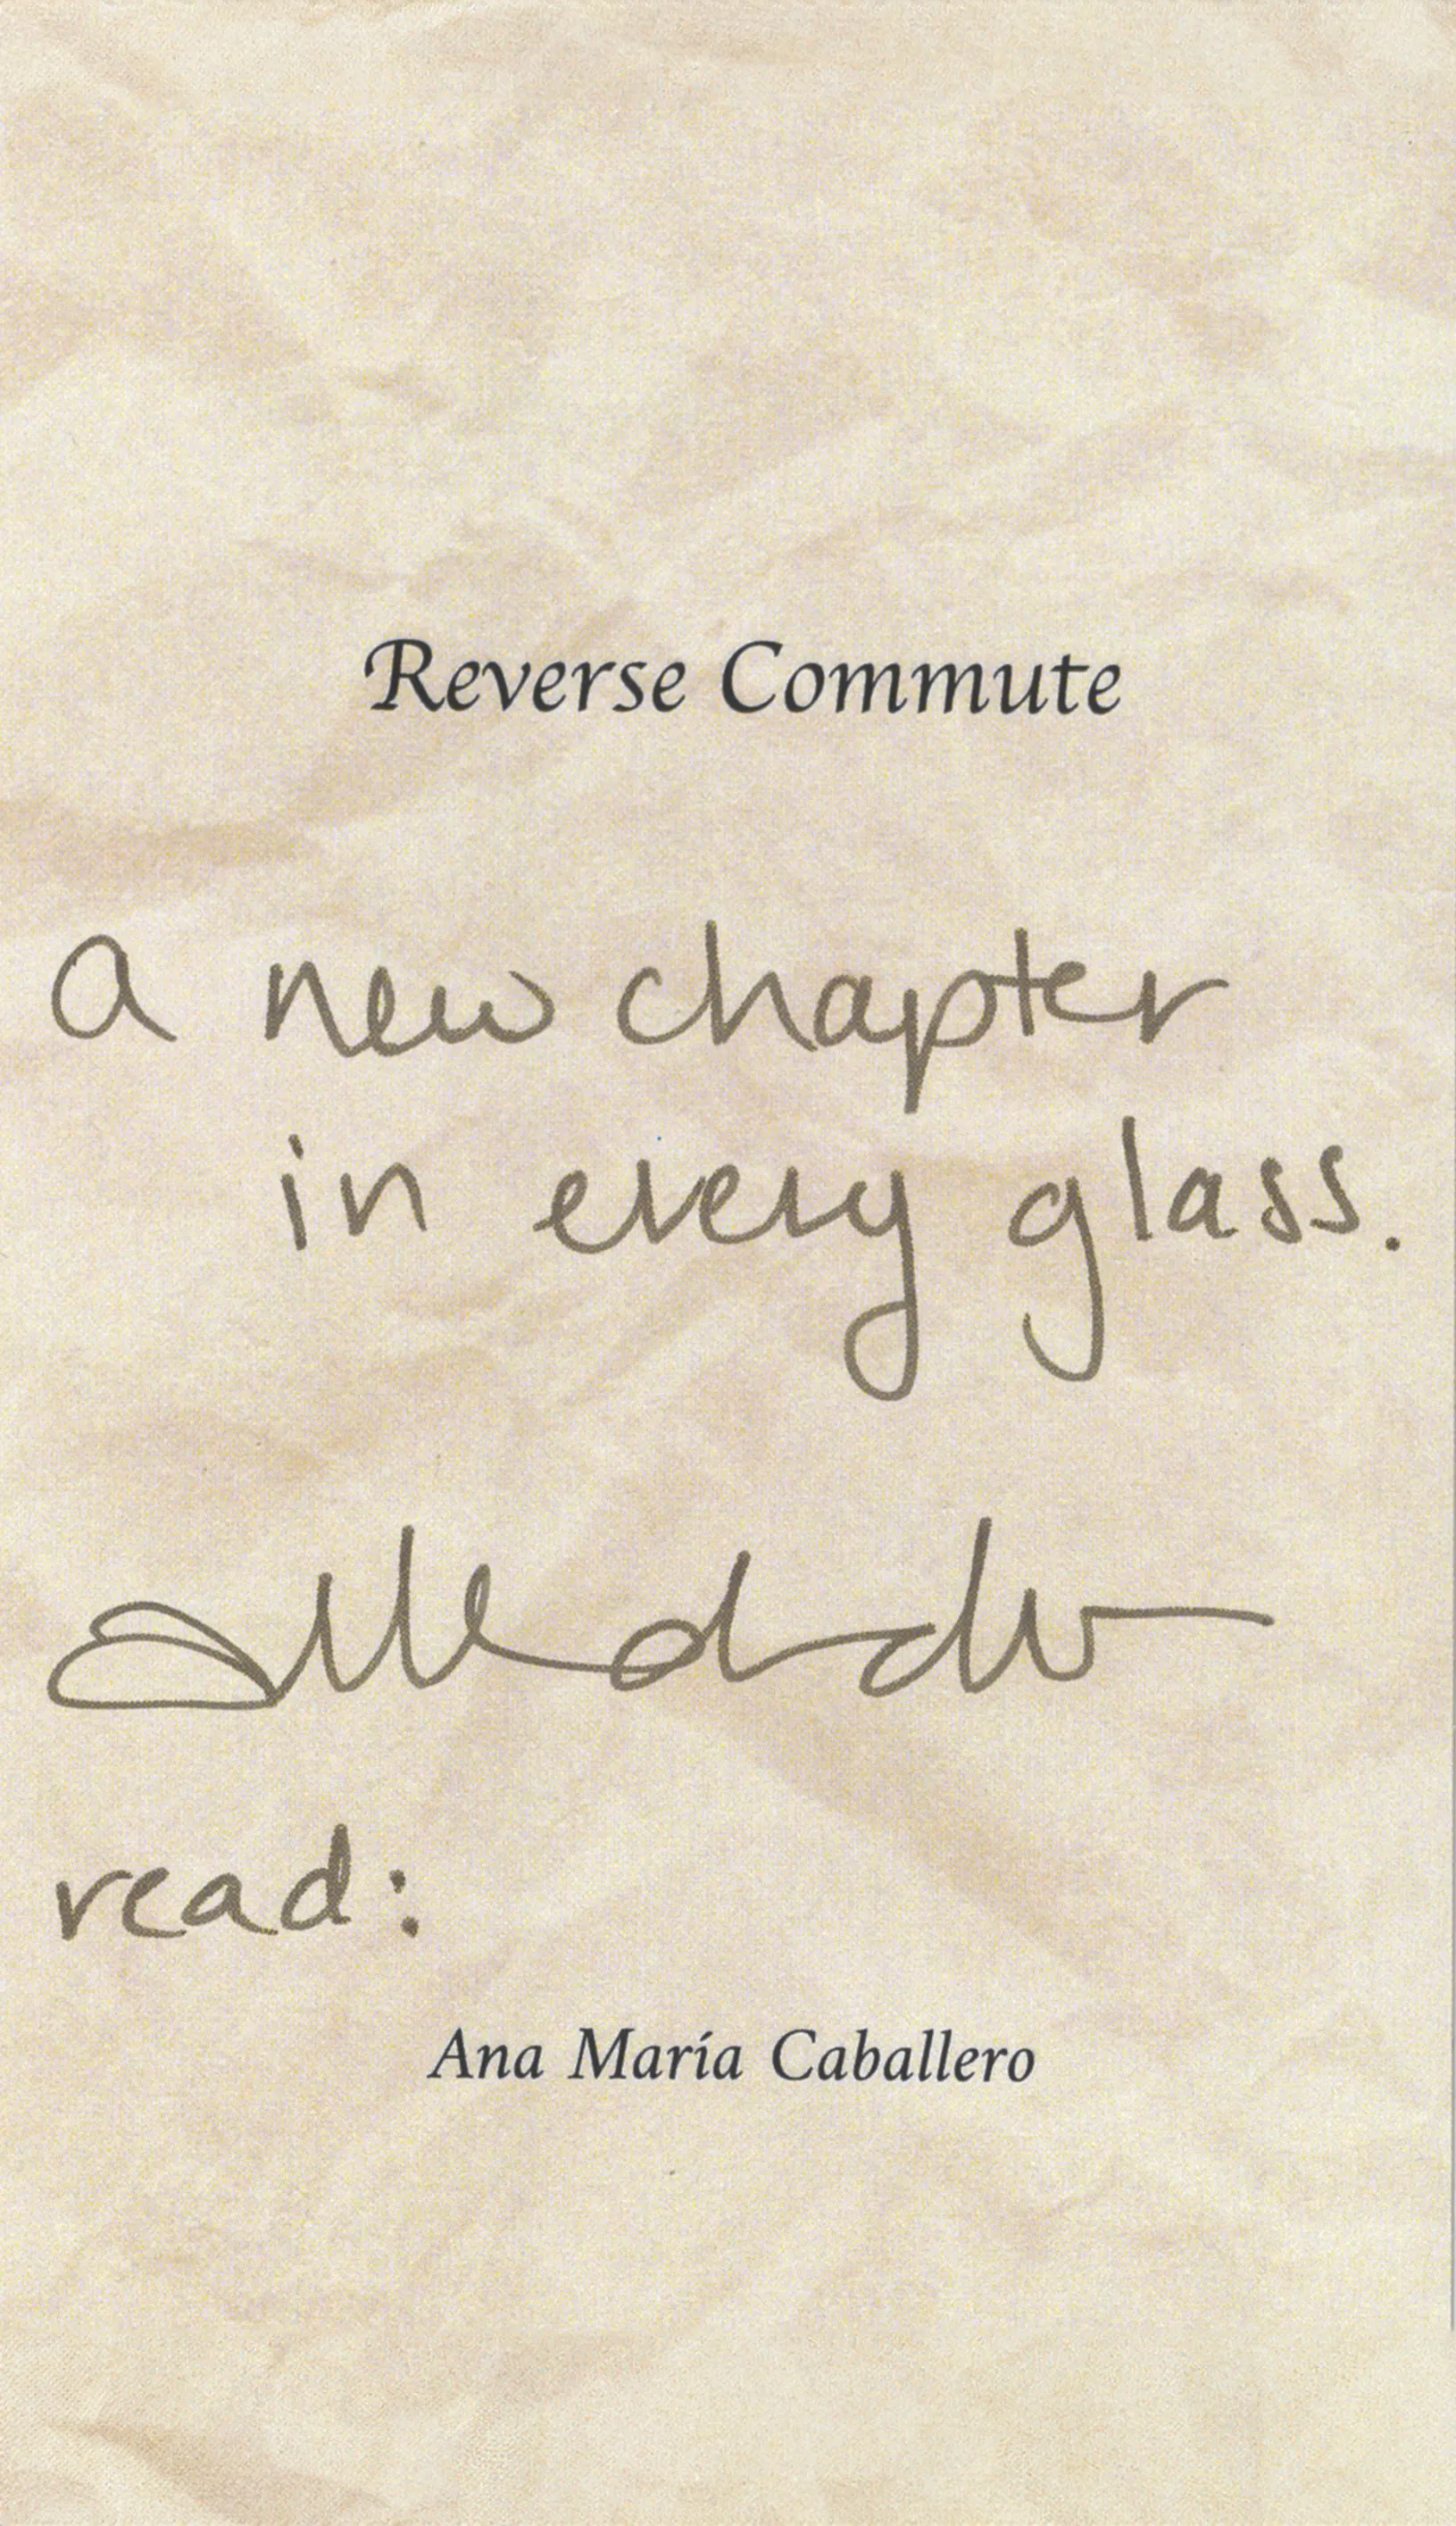 Reverse Commute
a new chapter
in every glass.
read:
Ana María Caballero